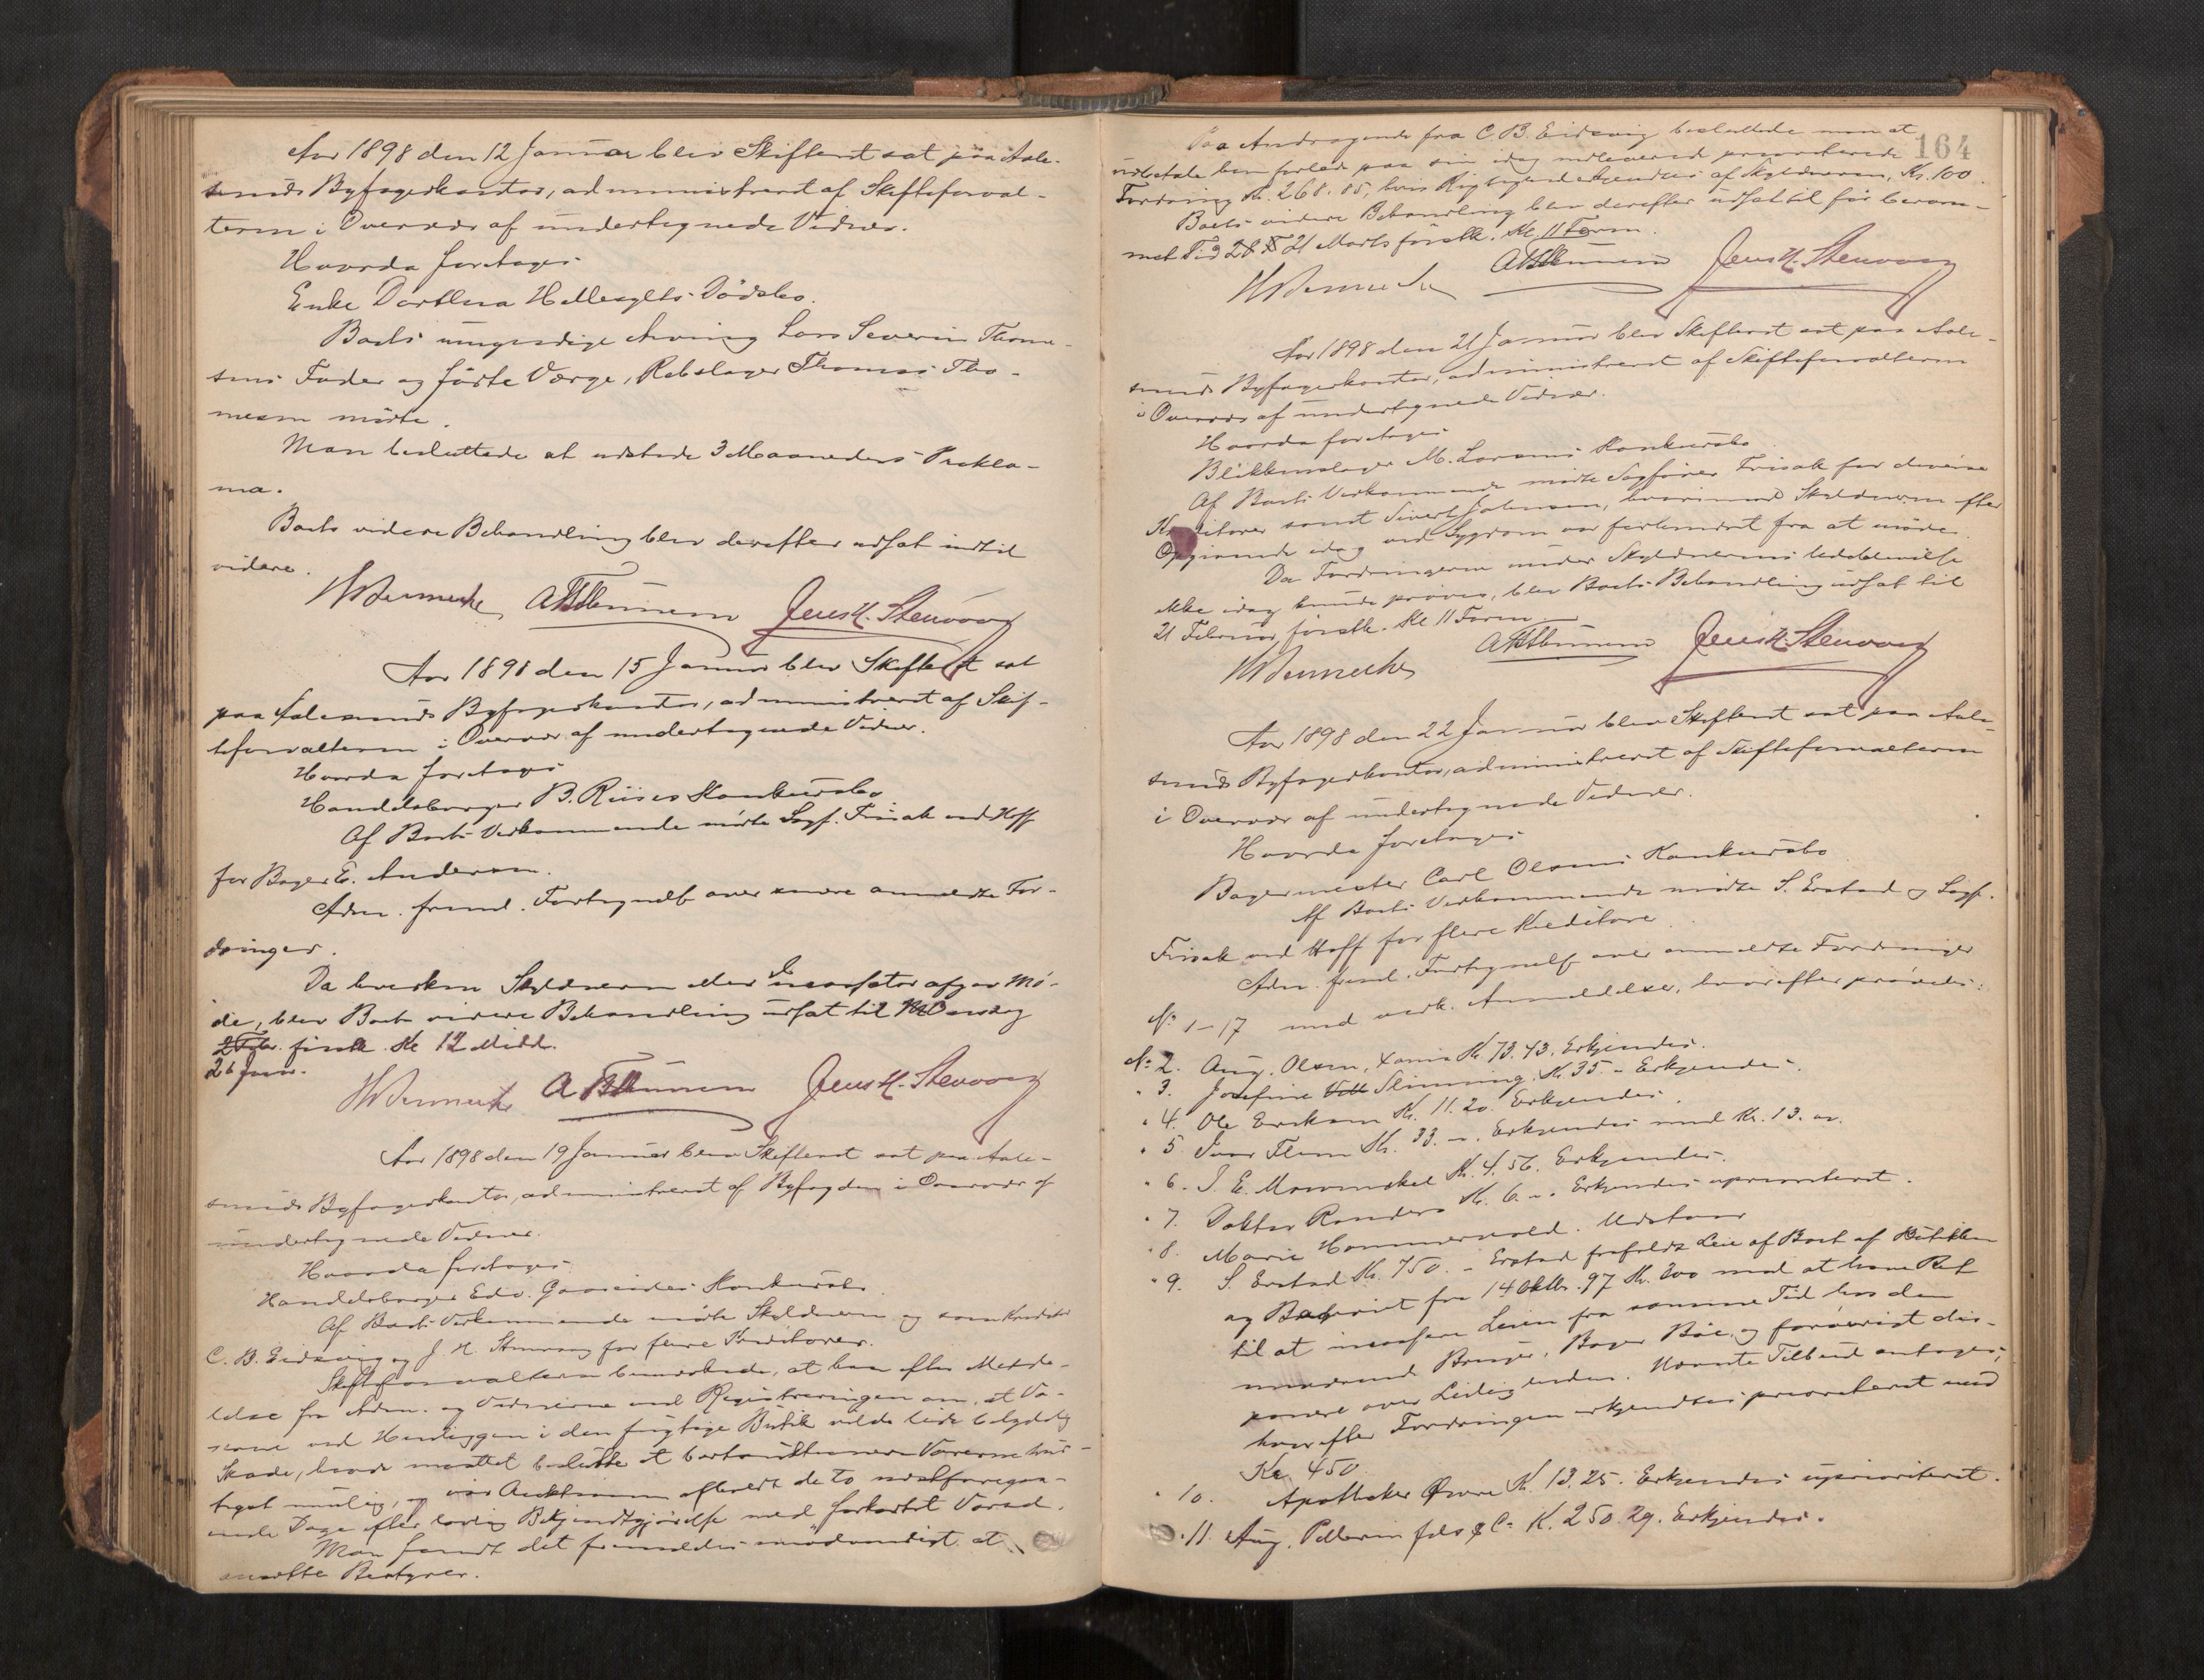 Aar 1898 den 12 Januar blev Skifteret sat paa Aale-
sunds Byfogedkontor, administreret af Skifteforval-
teren i Overvær af undertegnede Vidner.
Hvorda foretoges
Enke Dorthea Hellesylts Dødsbo.
Boets umyndige Arving Lars Severin Thoma-
sens Fader og fødte Værge, Rebslager Thomas Tho-
mesen mødte.
Man besluttede at udstede 3 Maaneders Prokla-
ma.
Boets videre Behandling blev derefter udsat indtil
videre.
Jens H. Stenvaag
Aar 1898 den 15 Januar blev Skifteret sat
paa Aalesunds Byfogedkontor, administreret af Skif-
teforvalteren i Overvær af undertegnede Vidner.
Hvorda foretoges
Handelsborger B. Riises Konkursbo
Af Boets Vedkommende mødte Sagf. Frisak ved Hoff
for Bager E. Andersen.
Adm. freml. Fortegnelse over senere anmeldte For-
dringer.
Da hverken Skyldneren eller Incassator afgav Mø-
de, blev Boets videre Behandling udsat til Onsdag
2 Febr. førstk. Kl 12 Midd.
26 Jan.
Jens H. Stenvaag
Aar 1898 den 19 Januar blev Skifteret sat paa Aale-
sunds Byfogedkontor, administreret af Byfogden i Overvær af
undertegnede Vidner.
Hvorda foretoges
Handelsborger Edv. Gaaseides Konkursbo
Af Boets Vedkommende mødte Skyldneren og som Kreditor
C. B. Eidsvig og J. H. Stenvaag for flere Kreditorer.
Skifteforvalteren bemærkede, at han efter Medde-
lelse fra Adm. og Vidnerne ved Registreringen om, at Va-
rerne ved Henliggen i den fugtige Butik vilde lide betydelig
Skade, havde maattet beslutte at bortauktionere Varerne hur-
tigst mulig, og var Auktionen afholdt de to nestforegaa-
ende Dage efter lovlig Bekjendtgjørelse med forkortet Varsel.
Man fandt det fremdeles unødvendigt at
ansætte Bestyrer.
164
Paa Andragende fra C. B. Eidsvig besluttede man at
udbetale ham forlods paa sin idag indleverede prioriterede
Fordring Kr. 268.85, hvis Rigtighed erkjendtes af Skyldneren, Kr. 100.
Boets videre Behandling blev derefter udsat til før beram-
met Tid 21 Marts førstk. Kl. 11 Form.
Jens H. Stenvaag
Aar 1898 den 21 Januar blev Skifteret sat paa Aale-
sunds Byfogedkontor, administreret af Skifteforvalteren
i Overvær af undertegnede Vidner.
Hvorda foretoges
Blikkenslager M. Larsens Konkursbo
Af Boets Vedkommende mødte Sagfører Frisak for diverse
Kreditorer samt Sivert Johnsen, hvorimod Skyldneren efter
Opgivende idag ved Sygdom var forhindret fra at møde.
Da Fordringerne under Skyldnerens Udeblivelse
ikke idag kunde prøves, blev Boets Behandling udsat til
21 Februar førstk. Kl 11 Form.
Jens H. Stenvaag
Aar 1898 den 22 Januar blev Skifteret sat paa Aale-
sunds Byfogedkontor, administreret af Skifteforvalteren
i Overvær af undertegnede Vidner.
Hvorda foretoges
Bagermester Carl Olsens Konkursbo
Af Boets Vedkommende mødte S. Erstad og Sagf.
Frisak ved Hoff for flere Kreditore.
Adm. freml. Fortegnelse over anmeldte Fordringer
No 1-17 med vedk. Anmeldelser, hvorefter prøvedes:
No 2. Aug. Olsen, Kr. 73.43. Erkjendes.
" 3. Josefine Slinning. Kr. 35.- Erkjendes.
" 4. Ole Eriksen Kr. 11.20. Erkjendes.
" 5 Ivar Flem Kr. 33.-. Erkjendes med Kr. 13. -.
" 6. J. E. Mowinckel Kr. 4.56. Erkjendes.
" 7. Doktor Randers Kr. 6.-. Erkjendes uprioriteret.
" 8. Marie Hammersvold. Udstaar
" 9. S. Erstad Kr. 750.- Erstad frafaldt Leie af Boet af Butikken
og Bageriet fra 14 Oktbr. 97 Kr. 300 mod at have Ret
til at incassere Leien fra samme Tid hos den
nuværende Bruger, Bager Bøe, og forøvrigt dis-
ponere over Leiligheden. Nævnte Tilbud antoges,
hvorefter Fordringen erkjendtes prioriteret med
Kr. 450
" 10. Apotheker Øwre Kr. 13.25. Erkjendes uprioriteret.
" 11. Aug. Pellerin fils & Co K. 250.29. Erkjendes.